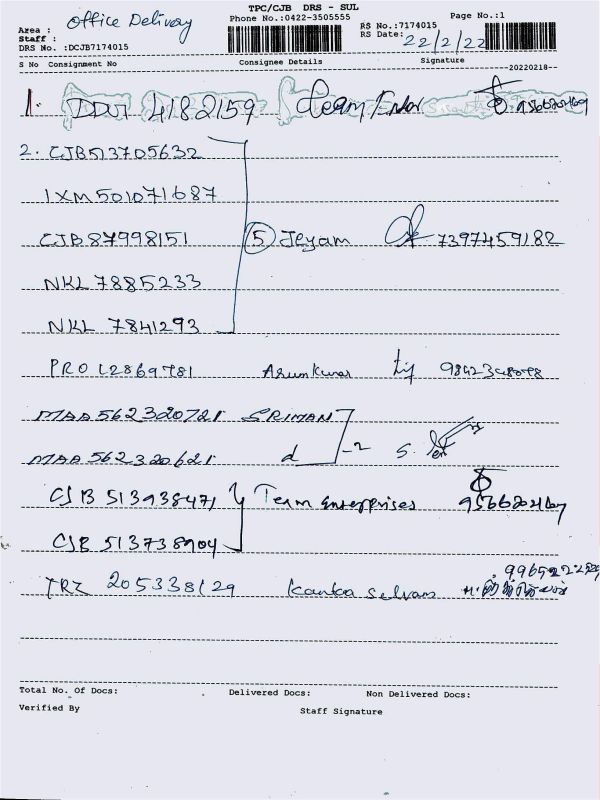 TPC/CJB DRS - SUL
Office Delivery
Phone No.:0422-3505555
Page No.:1
Area :
RS No.:7174015
Staff :
RS Date: 22/2/22
DRS No. :DCJB7174015
S No Consignment No Consignee Details Signature
20220218
1. 4182159 Team
2. CJB513705632
IXM501071687
CJB87998151 5 Jeyam 7397459182
NKL 7885233
NKL 7841293
PRO 12869781 Arunkumar
MAA562320721 SRIMAN
MAA562320621 d -2
CJB 513938471 Team Enterprises
CJB 513738904
TRZ 205338129 Kanka Selvan
Total No. Of Docs: Delivered Docs: Non Delivered Docs:
Verified By Staff Signature